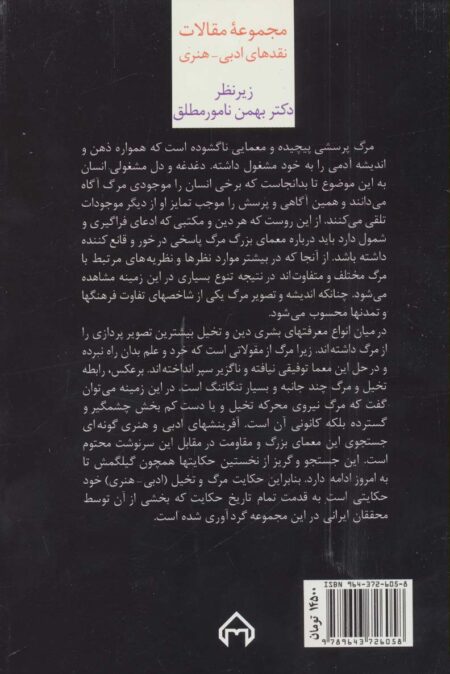 مجموعهٔ مقالات
نقدهای ادبی - هنری
زیرنظر
دکتر بهمن نامورمطلق
مرگ پرسشی پیچیده و معمایی ناگشوده است که همواره ذهن و
اندیشه آدمی را به خود مشغول داشته. دغدغه و دل مشغولی انسان
به این موضوع تا بدانجاست که برخی انسان را موجودی مرگ آگاه
می‌دانند و همین آگاهی و پرسش را موجب تمایز او از دیگر موجودات
تلقی می‌کنند. از این روست که هر دین و مکتبی که ادعای فراگیری و
شمول دارد باید درباره معمای بزرگ مرگ پاسخی در خور و قانع کننده
داشته باشد. از آنجا که در بیشتر موارد نظرها و نظریه‌های مرتبط با
مرگ مختلف و متفاوت‌اند در نتیجه تنوع بسیاری در این زمینه مشاهده
می‌شود. چنانکه اندیشه و تصویر مرگ یکی از شاخصهای تفاوت فرهنگها
و تمدنها محسوب می‌شود.
در میان انواع معرفتهای بشری دین و تخیل بیشترین تصویر پردازی را
از مرگ داشته‌اند. زیرا مرگ از مقولاتی است که خرد و علم بدان راه نبرده
و در حل این معما توفیقی نیافته و ناگزیر سپر انداخته‌اند. برعکس، رابطه
تخیل و مرگ چند جانبه و بسیار تنگاتنگ است. در این زمینه می‌توان
گفت که مرگ نیروی محرکه تخیل و یا دست کم بخش چشمگیر و
گسترده بلکه کانونی آن است. آفرینشهای ادبی و هنری گونه‌ای
جستجوی این معمای بزرگ و مقاومت در مقابل این سرنوشت محتوم
است. این جستجو و گریز از نخستین حکایتها همچون گیلگمش تا
به امروز ادامه دارد. بنابراین حکایت مرگ و تخیل (ادبی - هنری) خود
حکایتی است به قدمت تمام تاریخ حکایت که بخشی از آن توسط
محققان ایرانی در این مجموعه گرد آوری شده است.
ISBN 964-372-605-8
9789643726058
۱۴۵۰۰ تومان